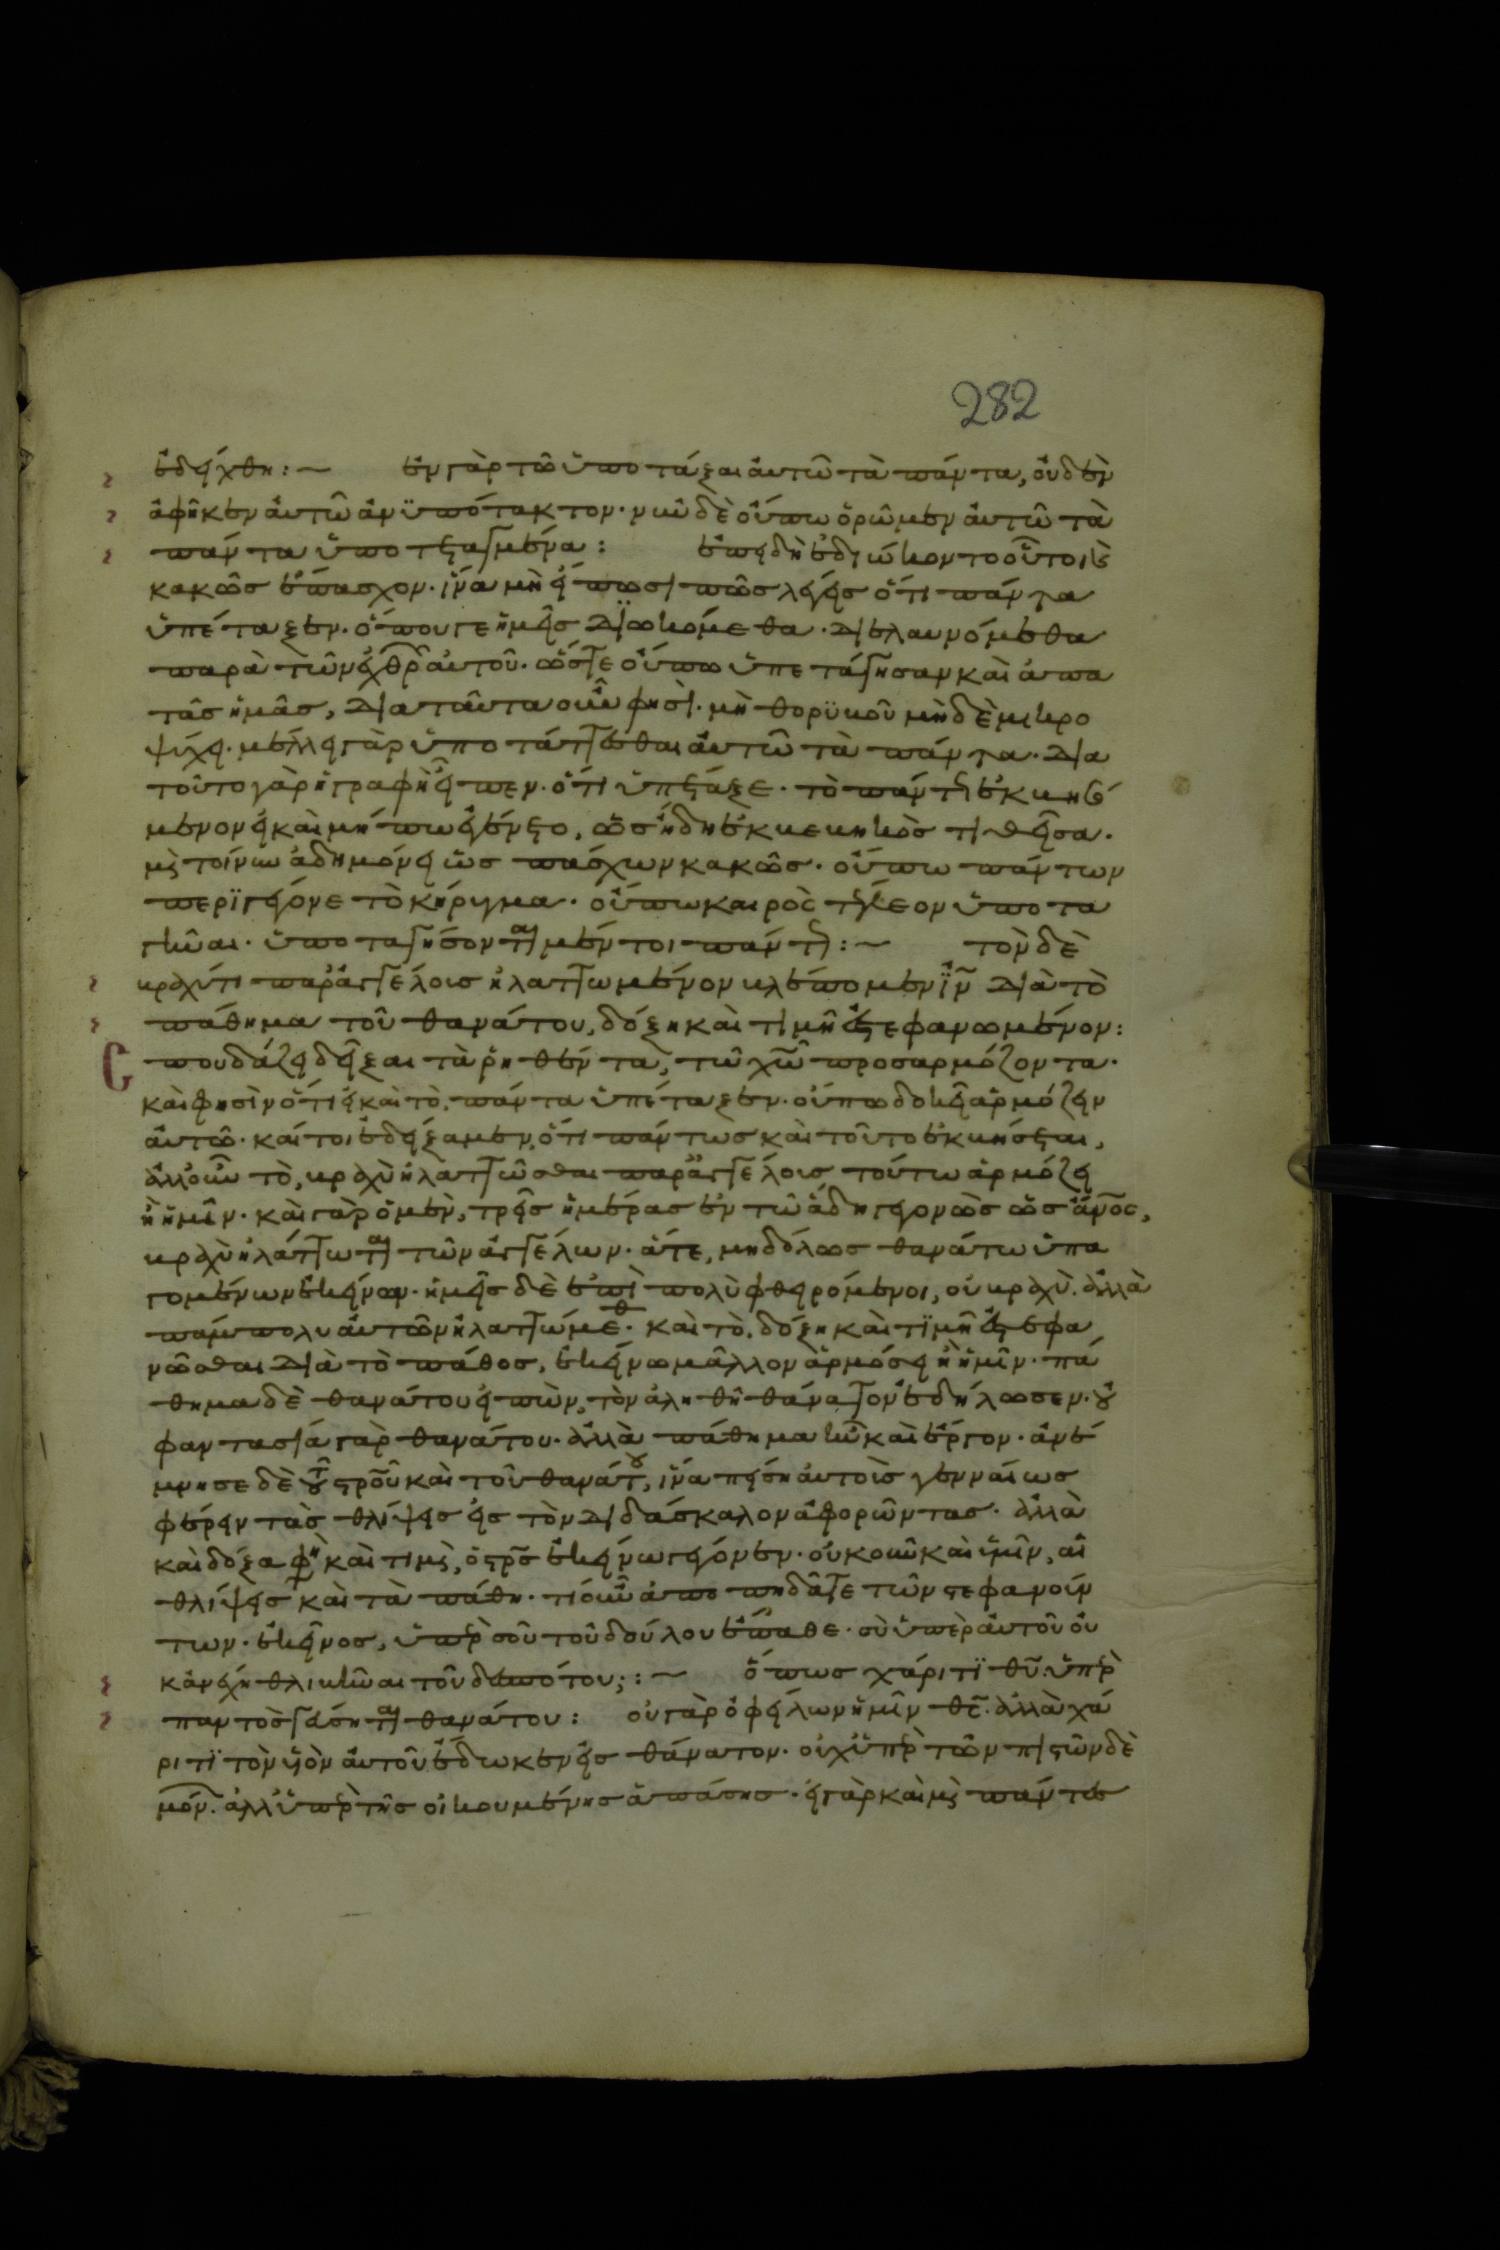 282
ἐδείχθη :~ ἐν γὰρ τῶ ὑποτάξαι αὐτῶ τὰ πάντα, οὐδὲν
ἀφῆκεν αὐτῶ ἀνϋπότακτον· νῦν δὲ οὔπω ὁρῶμεν αὐτῶ τὰ
πάντα ὑποτεταγμένα : ἐπειδὴ ἐδιώκοντο οὗτοι ς
κακῶς ἔπασχον· ἵνα μὴ εἴπωσι πῶς λέγεις ὅτι πάντα
ὑπέταξεν· ὅπου γε ἡμεῖς διωκόμεθα· διελαυνόμεθα
παρὰ τῶν ἐχθρ αὐτοῦ· ὥστε οὔπω ὑπετάγησαν καὶ ἀπα
τᾶς ἡμᾶς, διαταῦτα οὖν φησὶ· μὴ θορϋβοῦ μὴδὲ μικρο
ψύχει· μέλλει γὰρ ὑποτάττεσθαι αὐτῶ τὰ πάντα· δια
τοῦτο γὰρ ἡ γραφὴ εἶπεν· ὅτι ὑπέταξε· τὸ πάντως ἐκβησό
μενον εἰ καὶ μήπω ἐγένετο, ὡς ἤδη ἐκβεβηκὸς τιθεῖσα·
μὴ τοίνυν ἀδημόνει ὡς πάσχων κακῶς· οὔπω πάντων
περϊγέγονε τὸ κήρυγμα· οὔπω καιρὸς τέλεον ὑποτα
γῆναι· ὑποταγήσονται μέντοι πάντως :~ τὸν δὲ
βραχύ τι παρ ἀγγέλοις ἠλαττωμένον βλέπομεν ϊν διὰ τὸ
πάθημα τοῦ θανάτου, δόξη καὶ τιμῆ ἐστεφανωμένον :
Σπουδάζει δεῖξαι τὰ ῥηθέντα, τῶ χω προσαρμόζοντα·
καὶ φησὶν ὅτι εἰ καὶ τὸ, πάντα ὑπέταξεν· οὔπω δοκεῖ ἁρμόζειν
αὐτῶ· καίτοι ἐδείξαμεν, ὅτι πάντως καὶ τοῦτο ἐκβήσεται,
ἀλλ οὖν τὸ, βραχὺ ἠλαττῶσθαι παρ ἀγγέλοις τούτω ἁρμόζει
ἢ ἡμῖν· καὶ γὰρ ὁ μὲν, τρεῖς ἡμέρας ἐν τῶ ἅδη γεγονὼς ὡς ἄνος,
βραχὺ ἠλάττωται τῶν ἀγγέλων· ἅτε, μηδόλως θανάτω ὑπα
γομένων ἐκείνων· ἡμεῖς δὲ ἐπὶ πολὺ φθειρόμενοι, οὐ βραχὺ. ἀλλὰ
πάμπολυ αὐτῶν ἠλαττώμεθ· καὶ τὸ, δόξη καὶ τϊμῆ ἐστεφα
νῶσθαι διὰ τὸ πάθος, ἐκείνω μᾶλλον ἁρμόσει ἢ ἡμῖν· πά
θημα δὲ θανάτου εἰπὼν, τὸν ἀληθῆ θάνατον ἐδήλωσεν· οὐ
φαντασία γὰρ θανάτου· ἀλλὰ πάθημα ἦν καὶ ἔργον· ἀνέ
μνησε δὲ τοῦ στροῦ καὶ τοῦ θανάτου, ἵνα πείση αὐτοὺς γενναίως
φέρειν τὰς θλίψεις εἰς τὸν διδάσκαλον ἀφορῶντας· ἀλλὰ
καὶ δόξα φη καὶ τιμὴ, ὁ στρς ἐκείνω γέγονεν· οὐκοῦν καὶ ὑμῖν, αἱ
θλίψεις καὶ τὰ πάθη· τί οὖν ἀποπηδᾶτε τῶν στεφανούν
των· ἐκεῖνος, ὑπὲρ σοῦ τοῦ δούλου ἔπαθε· σὺ ὑπὲρ αὐτοῦ οὐ
κ ἀνέχη θλιβῆναι τοῦ δεσπότου; :~ ὅπως χάριτϊ θυ ὑπὲρ
παντὸς γεύσηται θανάτου : οὐ γὰρ ὀφείλων ἡμῖν θς. ἀλλὰ χά
ριτϊ τὸν υἱὸν αὐτοῦ ἔδωκεν εἰς θάνατον· οὐχ ὑπὲρ τῶν πιστῶν δὲ
μόν. ἀλλ ὑπὲρ τῆς οἰκουμένης ἁπάσης· εἰ γὰρ καὶ μὴ πάντες